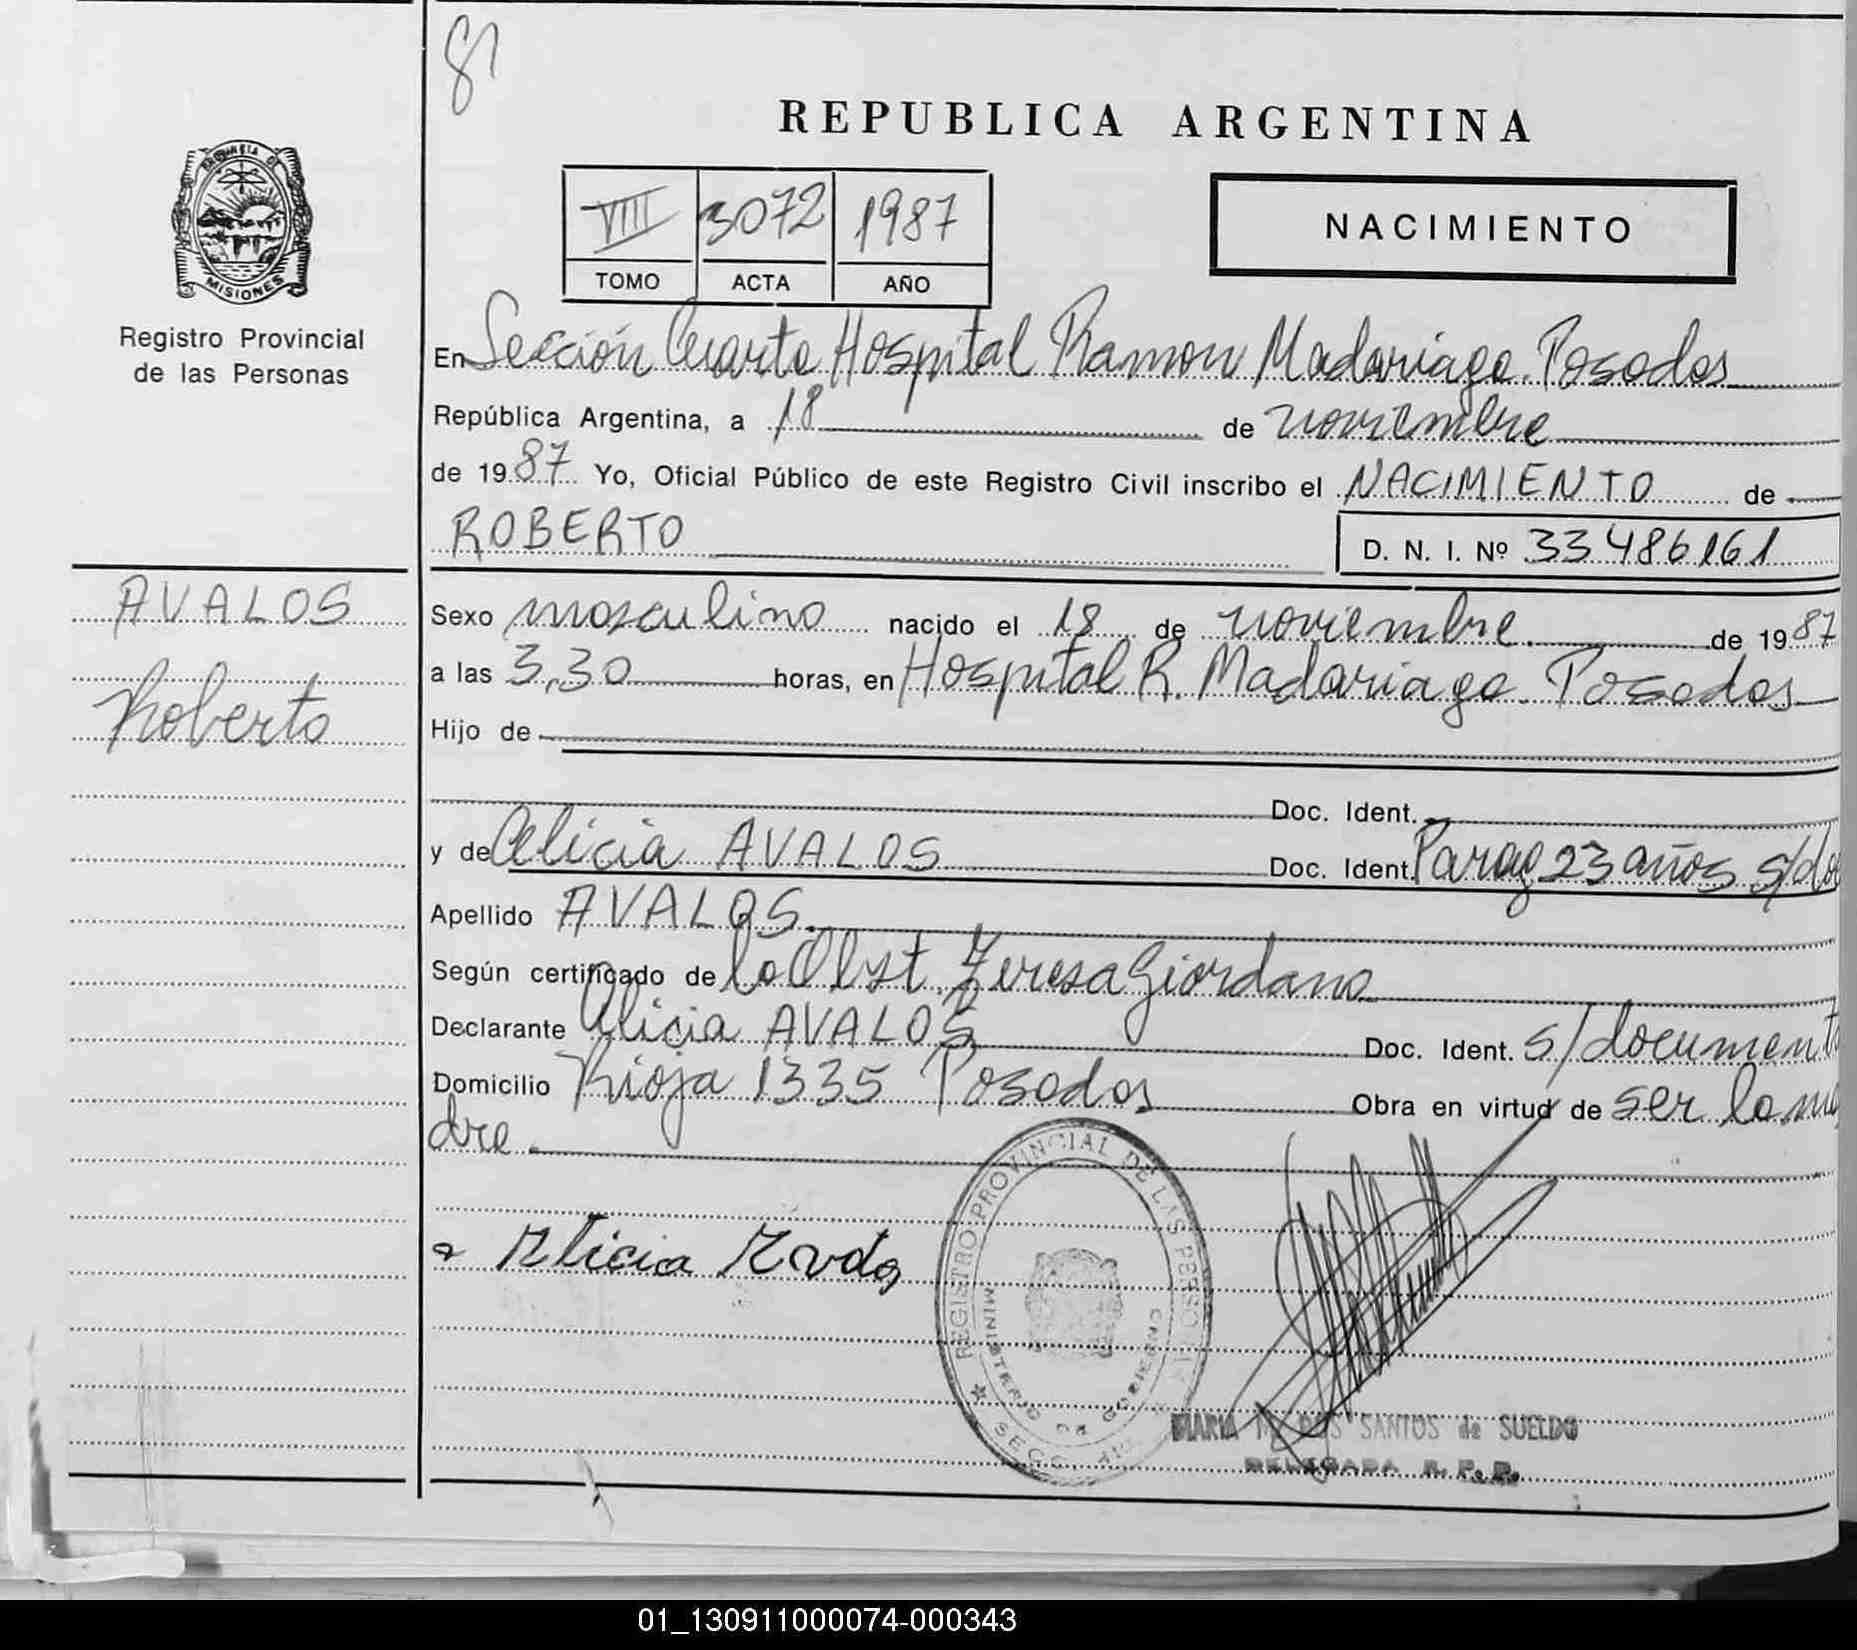 81
REPUBLICA ARGENTINA
PROVINCIA DE MISIONES
Registro Provincial
de las Personas
VIII 3072 1987
TOMO ACTA AÑO
NACIMIENTO
En Sección Cuarta Hospital Ramon Madariaga. Posadas
República Argentina, a 18 de noviembre
de 1987 Yo, Oficial Público de este Registro Civil inscribo el NACIMIENTO de
ROBERTO D. N. I. Nº 33486161
AVALOS
Roberto
Sexo masculino nacido el 18 de noviembre. de 1987
a las 3,30 horas, en Hospital R. Madariaga. Posadas
Hijo de
Doc. Ident.
y de Alicia AVALOS Doc. Ident. Parag 23 años s/do
Apellido AVALOS.
Según certificado de la Obst. Teresa Giordano
Declarante Alicia AVALOS Doc. Ident. s/document
Domicilio Rioja 1335 Posadas Obra en virtud de ser la ma
dre.
Alicia
REGISTRO PROVINCIAL DE LAS PERSO
MINISTERIO DE GOBIERNO
SECC
MARIA SANTOS de SUELDO
DELEGADA R. P. P.
01_130911000074-000343